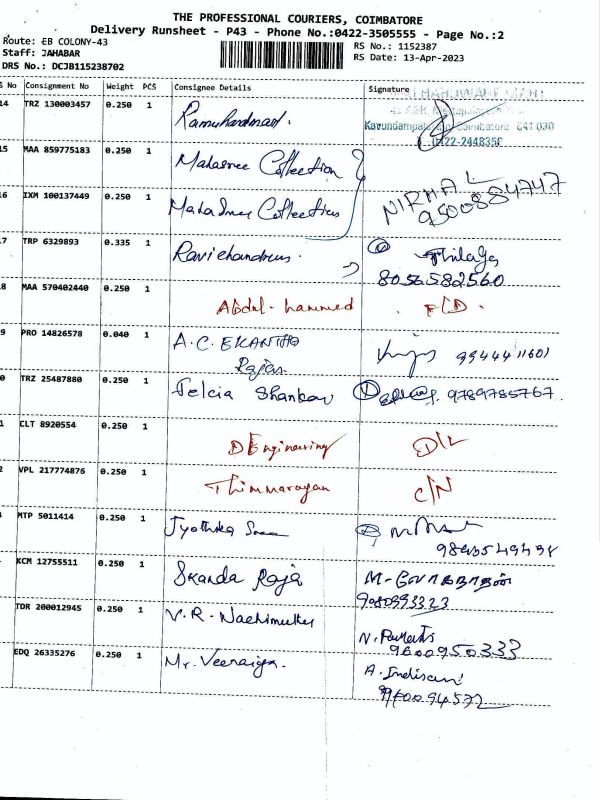 THE PROFESSIONAL COURIERS, COIMBATORE
Delivery Runsheet - P43 - Phone No.:0422-3505555 - Page No.:2
Route: EB COLONY-43
Staff: JAHABAR
DRS No.: DCJB115238702
RS No.: 1152387
RS Date: 13-Apr-2023
S No Consignment No Weight PCS Consignee Details Signature
14 TRZ 130003457 0.250 1
Kavundampala Coimbatore 641 030
0422-2448356
15 MAA 859775183 0.250 1 Mahasree Collection
16 IXM 100137449 0.250 1 Mahasree Collection NIRMAL
9500884747
7 TRP 6329893 0.335 1 Ravichandran Thilaga
8056582560
8 MAA 570402440 0.250 1 Abdul-hammed
9 PRO 14826578 0.040 1 A.C. EKANTHA
Rajan
9944411601
0 TRZ 25487880 0.250 1 Felcia Shankar 9789785767.
1 CLT 8920554 0.250 1 D Engineering D/L
2 VPL 217774876 0.250 1 Thimmarayan C/N
MTP 5011414 0.250 1 Jyothika
KCM 12755511 0.250 1 Skanda Raja M-லோகநாதன்
TDR 200012945 0.250 1 V.R. Nachimuthu
9600950333
EDQ 26335276 0.250 1 Mr. Veeraiya.